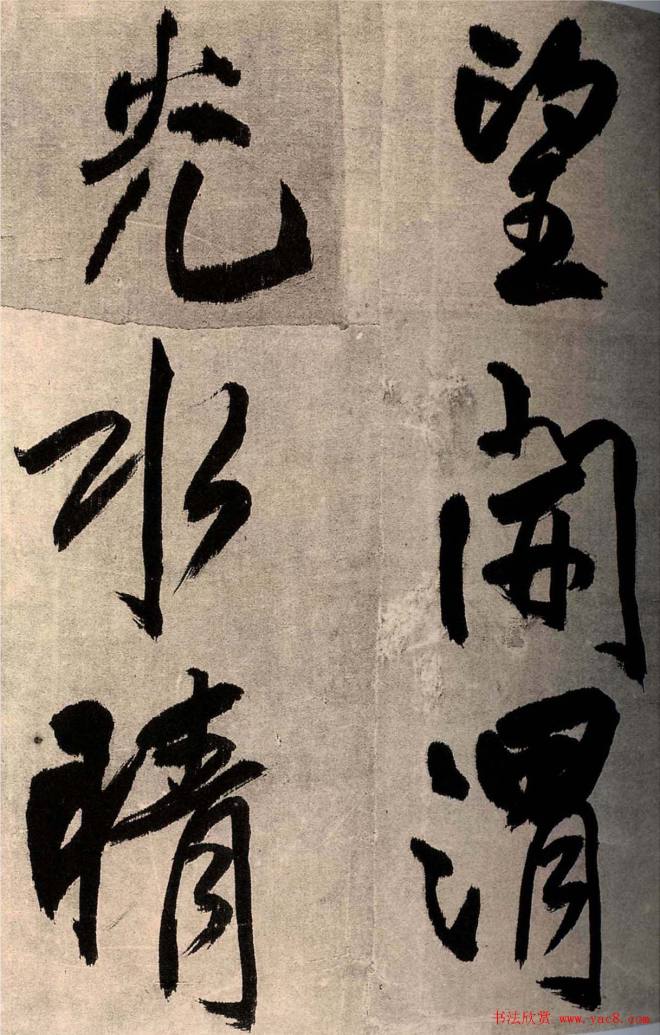 望開渭
光水精
书法欣赏 www.yac8.com